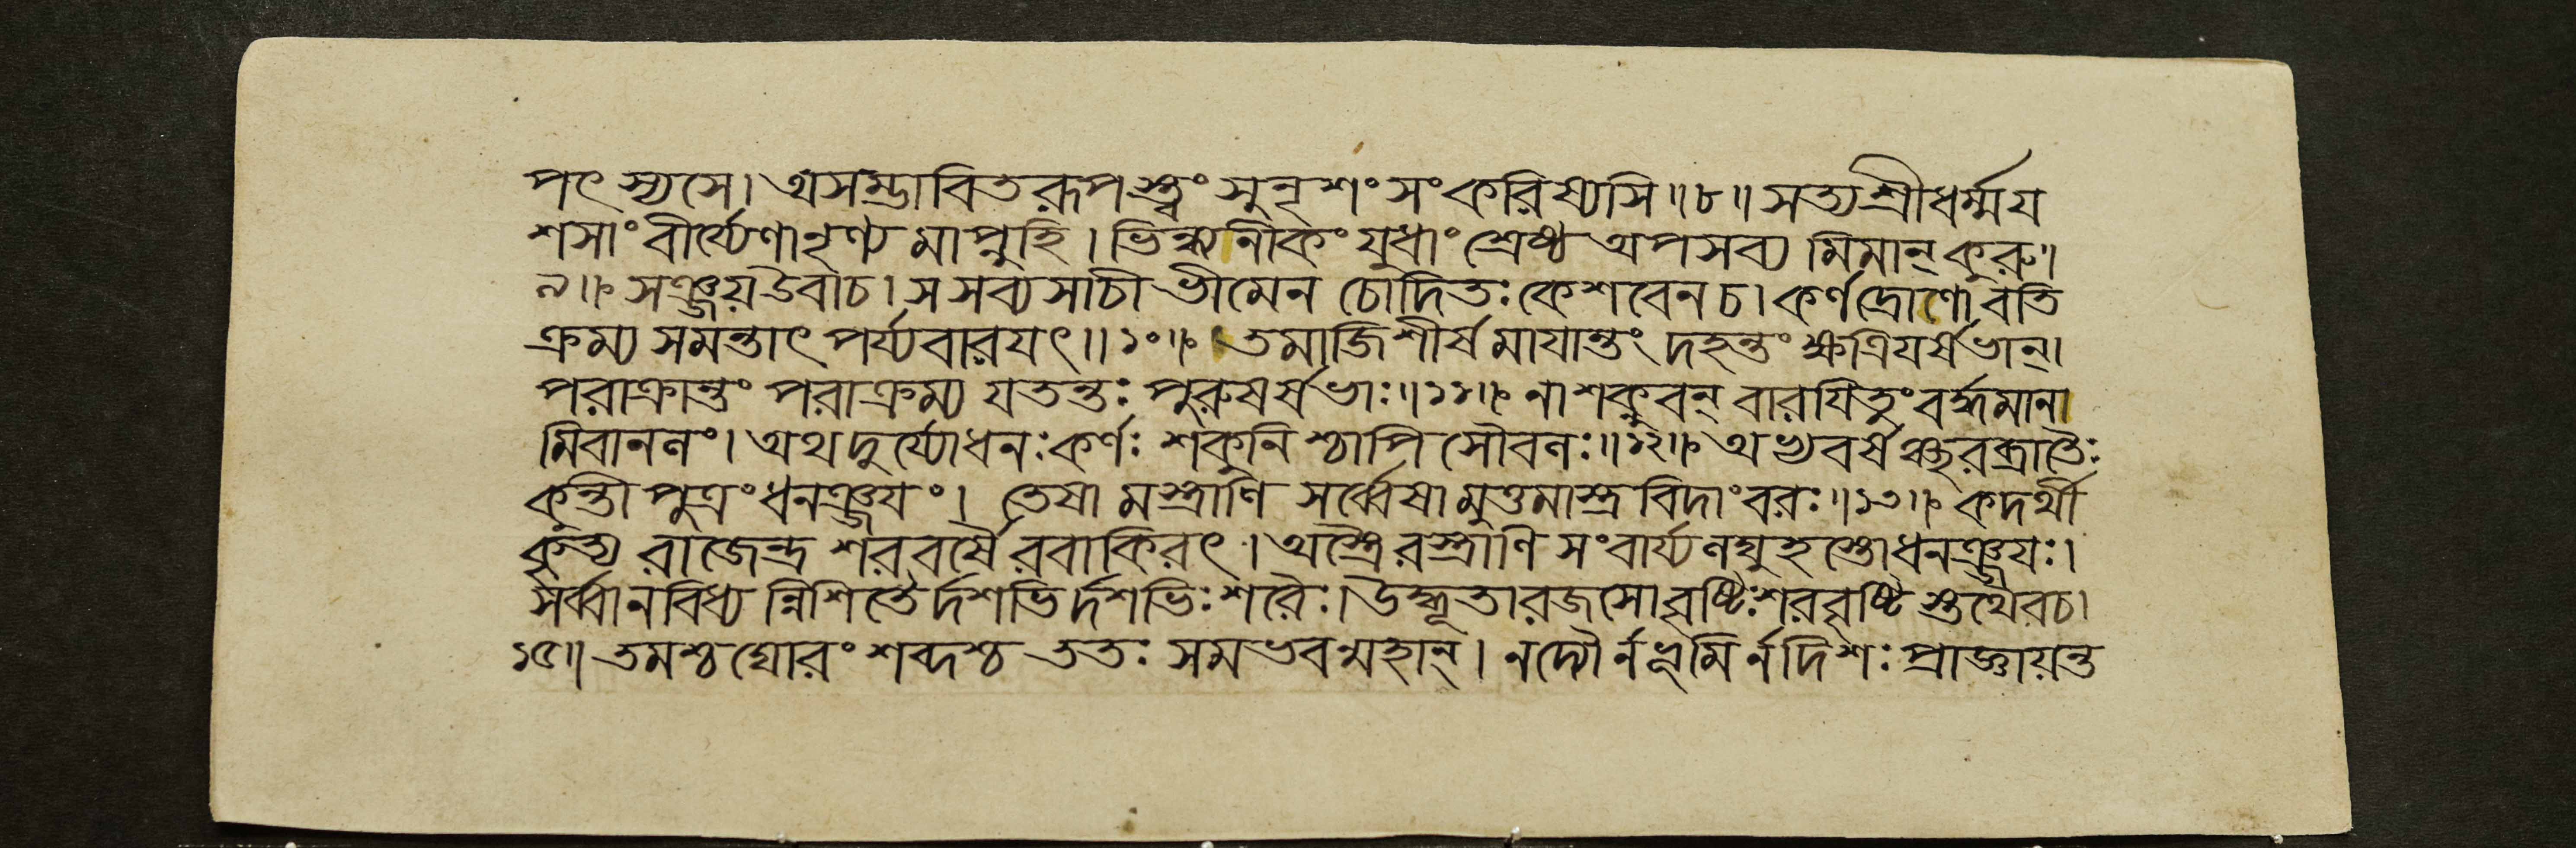 পৎস্যসে। অসম্ভাবিতরূপস্ত্বং সুনৃশংসং করিষ্যসি॥৮॥ সত্যশ্রীধর্ম্ময
শসাং বীর্য্যেণানৃণ্যমাপ্নুহি। ভিন্ধ্যনীকং যুধাং শ্রেষ্ঠ অপসব্যমিমান্ কুরু॥
৯॥ সঞ্জয় উবাচ। স সব্যসাচী ভীমেন চোদিতঃ কেশবেন চ। কর্ণদ্রোণোবতি
ক্রম্য সমন্তাৎ পর্য্যবারযৎ॥১০॥ তমাজিশীর্ষমাযান্তং দহন্তং ক্ষত্রিযর্ষভান্।
পরাক্রান্তং পরাক্রম্য যতন্তঃ পুরুষর্ষভাঃ॥১১॥ নাশক্নুবন্ বারযিতুং বর্দ্ধমানা
মিবাননং। অথ দুর্য্যোধনঃ কর্ণঃ শকুনিশ্চাপি সৌবনঃ॥১২॥ অভ্যবর্ষঞ্ছরব্রাতৈঃ
কুন্তীপুত্রং ধনঞ্জযং। তেষামস্ত্রাণি সর্ব্বেষামুত্তমাস্ত্রবিদাং বরঃ॥১৩॥ কদর্থী
কৃত্য রাজেন্দ্র শরবর্ষৈরবাকিরৎ। অস্ত্রৈরস্ত্রাণি সংবার্য্য নঘুহস্তো ধনঞ্জযঃ।
সর্ব্বানবিধ্যন্নিশিতৈর্দশভির্দশভিঃ শরৈঃ। উদ্ধূতা রজসো বৃষ্টিঃ শরবৃষ্টিস্তথৈব চ।
১৫॥ তমশ্চ ঘোরং শব্দশ্চ ততঃ সমভবন্মহান্। ন দ্যৌর্ন ভূমির্ন দিশঃ প্রাজ্ঞায়ন্ত